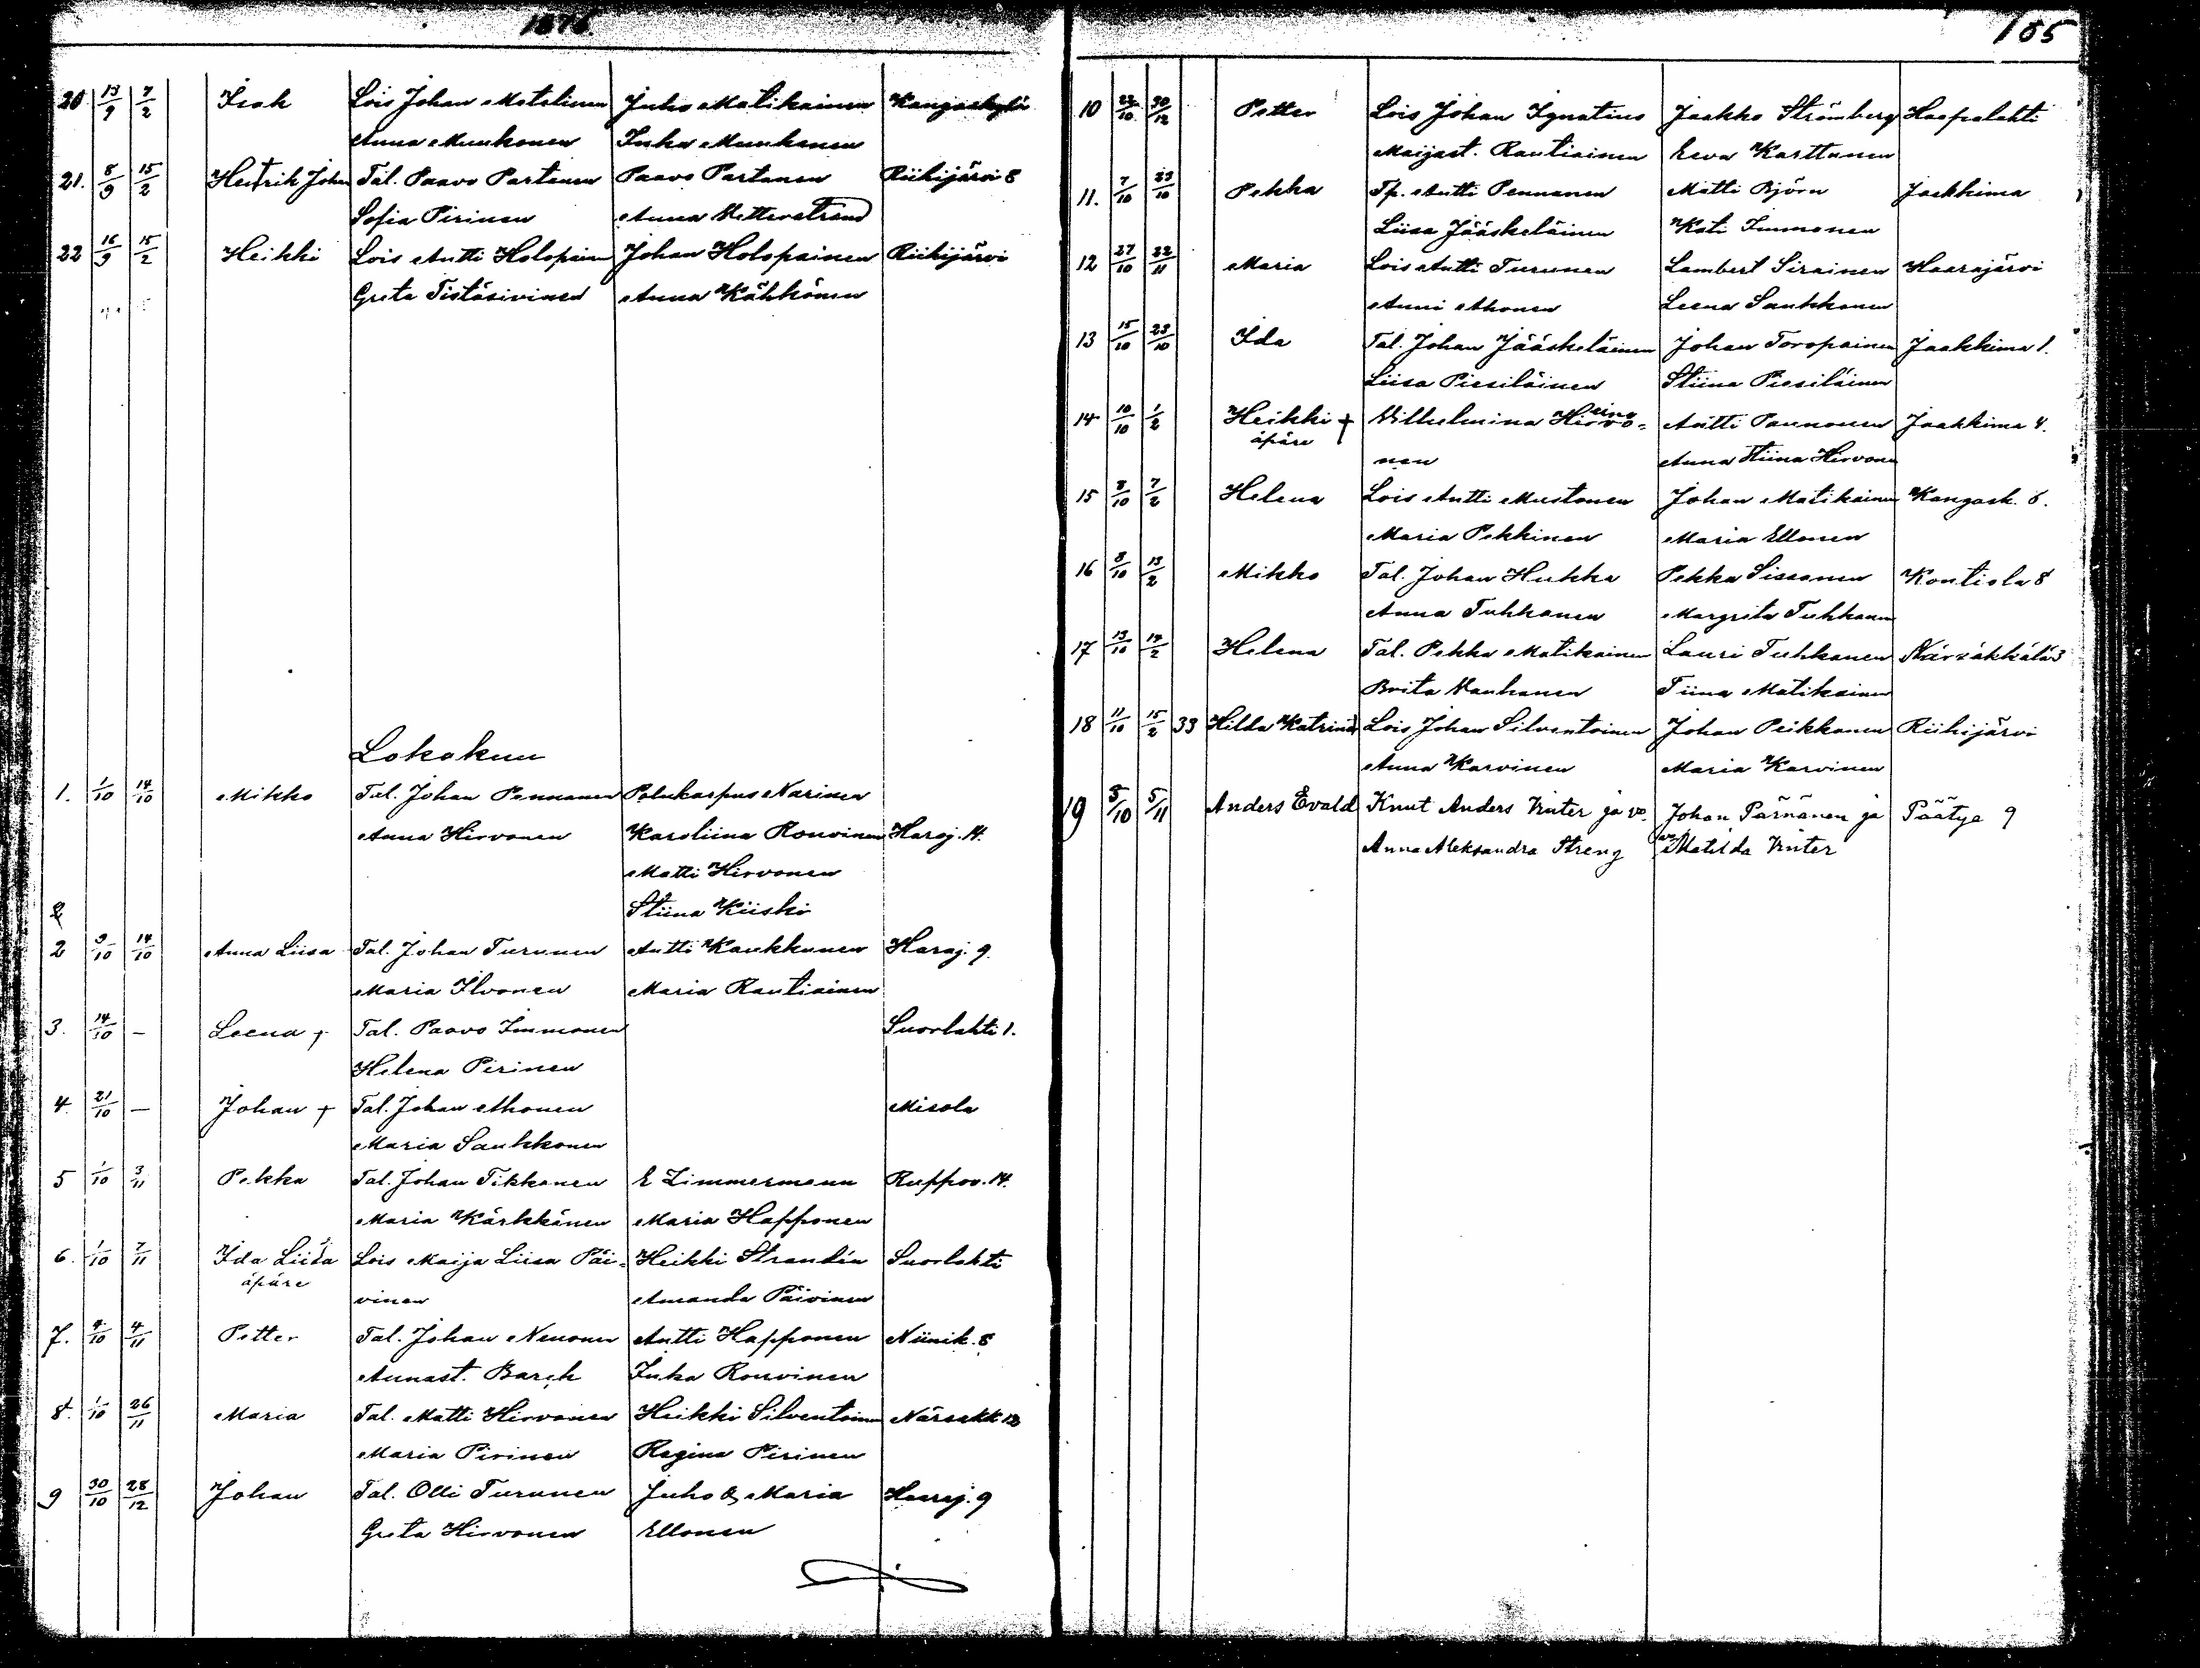 1876.
20 13/9 7/2 Isak Lois Johan Matelinen Juho Matikainen Kangaskylä
Anna Munkonen Inka Munkonen
21. 8/9 15/2 Hentrik Johan Tal. Paavo Partanen Paavo Partanen Riihijärvi 8
Sofia Pirinen Anna Vetterstrand
22 16/9 15/2 Heikki Lois Antti Holopainen Johan Holopainen Riihijärvi
Greta Tistäsivinen Anna Kähkönen
Lokakuu
1. 1/10 14/10 Mikko Tal. Johan Pennanen Polukarpus Narinen
Anna Hirvonen Karoliina Rouvinen Haraj. 14.
Matti Hirvonen
Stiina Kiiski
2
2 9/10 14/10 Anna Liisa Tal. Johan Turunen Antti Kaukkunen Haraj. 9.
Maria Ilvonen Maria Rautiainen
3. 14/10 – Leena + Tal. Paavo Immonen Suorlahti 1.
Helena Pirinen
4. 21/10 – Johan + Tal. Johan Ahonen Misola
Maria Saukkonen
5 1/10 3/11 Pekka Tal. Johan Tikkanen E Zimmermann Ruppov. 14.
Maria Kärkkänen Maria Happonen
6. 1/10 7/11 Ida Liisa Lois Maija Liisa Päi- Heikki Strandén Suorlahti
äpäre vinen Amanda Päivinen
7. 4/10 4/11 Petter Tal. Johan Nenonen Antti Happonen Niinik. 8
Annast. Barck Inka Rouvinen
8. 1/10 26/11 Maria Tal. Matti Hirvonen Heikki Silventoinen Närsakk 12
Maria Pirinen Regina Pirinen
9 30/10 28/12 Johan Tal. Olli Turunen Juho & Maria Haaraj. 9
Greta Hirvonen Ellonen
165
10 23/10 30/12 Petter Lois Johan Ignatius Jaakko Strömberg Haapalahti
Maijast. Rautiainen Eeva Karttunen
11. 7/10 23/10 Pekka Tp. Antti Pennanen Matti Björn Jaakkima
Liisa Jääskeläinen Kati Immonen
12 27/10 22/11 Maria Lois Antti Turunen Lambert Sirainen Haarajärvi
Anni Ahonen Leena Saukkonen
13 15/10 23/10 Ida Tal. Johan Jääskeläinen Johan Toropainen Jaakkima 1.
Liisa Piesiläinen Stiina Piesiläinen
14 10/10 1/2 Heikki + Vilhelmina Hirvo- Antti Paunonen Jaakkima 4.
äpäre nen Anna Stiina Hirvonen
15 8/10 7/2 Helena Lois Antti Mustonen Johan Matikainen Kangask. 6.
Maria Pekkinen Maria Ellonen
16 8/10 13/2 Mikko Tal. Johan Hukka Pekka Sissonen Kontiola 8
Anna Tuhkanen Margreta Tuhkanen
17 13/10 14/2 Helena Tal. Pekka Matikainen Lauri Tuhkanen Närsäkkälä 3
Brita Vauhanen Tiina Matikainen
18 11/10 15/2 33 Hilda Katrina Lois Johan Silventoinen Johan Peikkanen Riihijärvi
Anna Karvinen Maria Karvinen
19 5/10 5/11 Anders Evald Knut Anders Vinter ja vo. Johan Pärnänen ja Päätye 9
Anna Aleksandra Streng Matilda Vinter